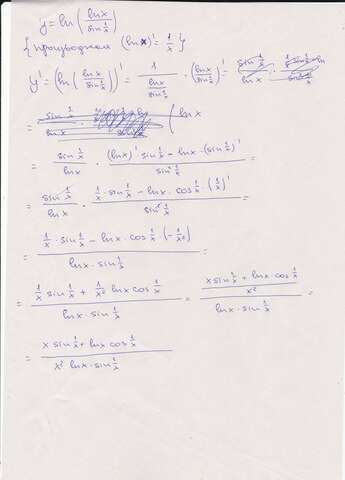 y = ln ( lnx / sin 1/x )
{ производной (lnx)' = 1/x }
y' = ( ln ( lnx / sin 1/x ) )' = 1 / ( lnx / sin 1/x ) · ( lnx / sin 1/x )' =
= ( lnx
= sin 1/x / lnx · ( (lnx)' sin 1/x - lnx · (sin 1/x)' ) / sin² 1/x =
= sin 1/x / lnx · ( 1/x · sin 1/x - lnx · cos 1/x · (1/x)' ) / sin² 1/x =
= ( 1/x · sin 1/x - lnx · cos 1/x · (- 1/x²) ) / ( lnx · sin 1/x ) =
= ( 1/x sin 1/x + 1/x² lnx cos 1/x ) / ( lnx · sin 1/x ) = ( ( x sin 1/x + lnx · cos 1/x ) / x² ) / ( lnx · sin 1/x ) =
= ( x sin 1/x + lnx cos 1/x ) / ( x² lnx · sin 1/x )